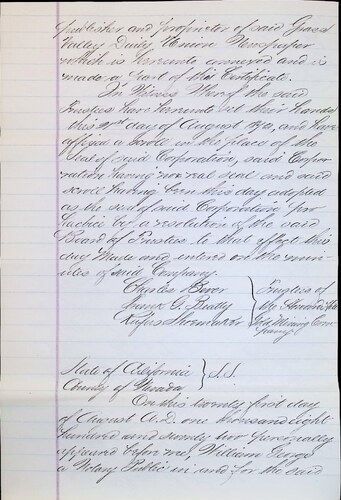 publisher and proprietor of said Grass
Valley Daily Union Newspaper
which is hereunto annexed and is
made a part of this Certificate.
In Witness Whereof the said
Trustees have hereunto set their hands
this 21st day of August 1872, and have
affixed a scroll in the place of the
Seal of said Corporation, said Corpo-
ration having now no seal and said
scroll having been this day adopted
as the seal of said Corporation pro
hac vice by a resolution of the said
Board of Trustees to that effect this
day made and entered on the min-
utes of said Company.
Charles Trustees of
Frank G. Beatty the
Rufus Shoemaker Gold Mining Com-
pany
State of California } S.S.
County of Nevada
On this twenty first day
of August A.D. one thousand eight
hundred and seventy two personally
appeared before me, William George
a Notary Public in and for the said